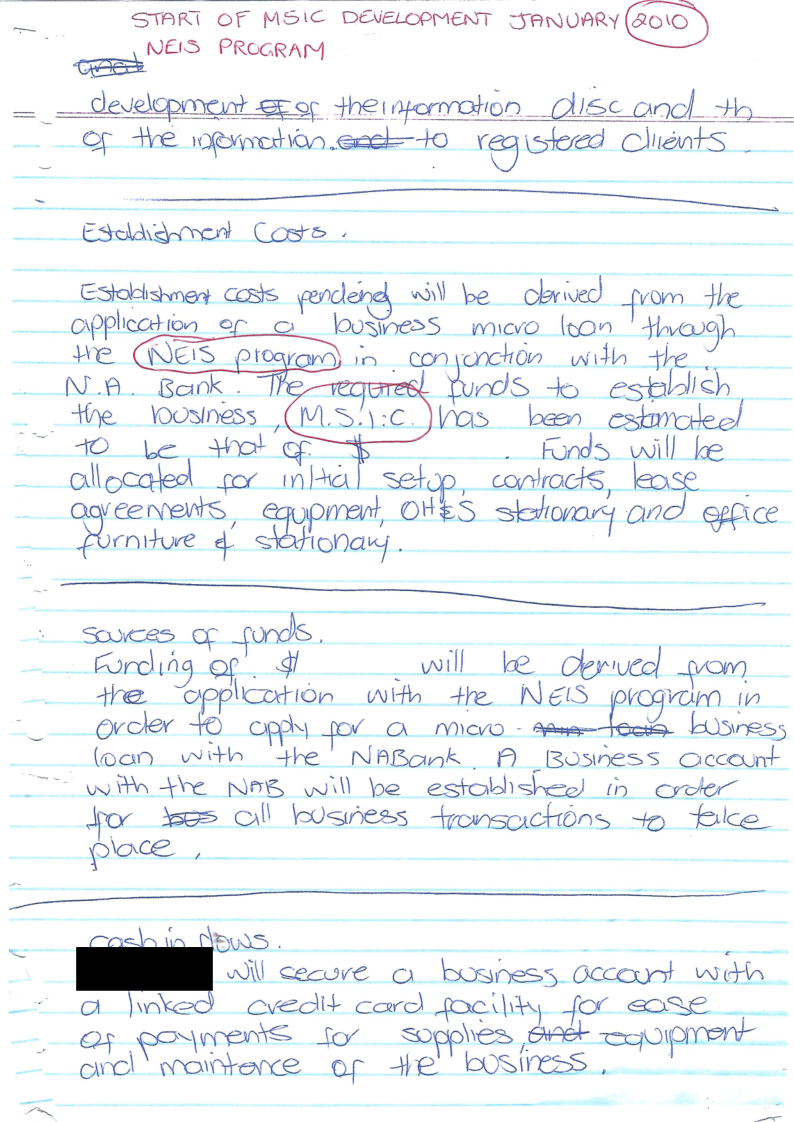 START OF MSIC DEVELOPMENT JANUARY 2010
NEIS PROGRAM
and
development of of the information disc and th
of the information and to registered clients.
Establishment Costs.
Establishment costs pending will be derived from the
application of a business micro loan through
the NEIS program in conjonction with the
N.A. Bank. The required funds to establish
the business, M.S.I.C. has been estamated
to be that of $ . Funds will be
allocated for initial setup, contracts, lease
agreements, equpment, OH&S stationary and office
furniture & stationary.
Sources of funds.
Funding of $ will be derived from
the application with the NEIS program in
order to apply for a micro loan business
loan with the NABank. A Business account
with the NAB will be established in order
for bus all business transactions to take
place,
cash in flows.
will secure a business account with
a linked credit card facility for ease
of payments for supplies, and equipment
and maintence of the business.